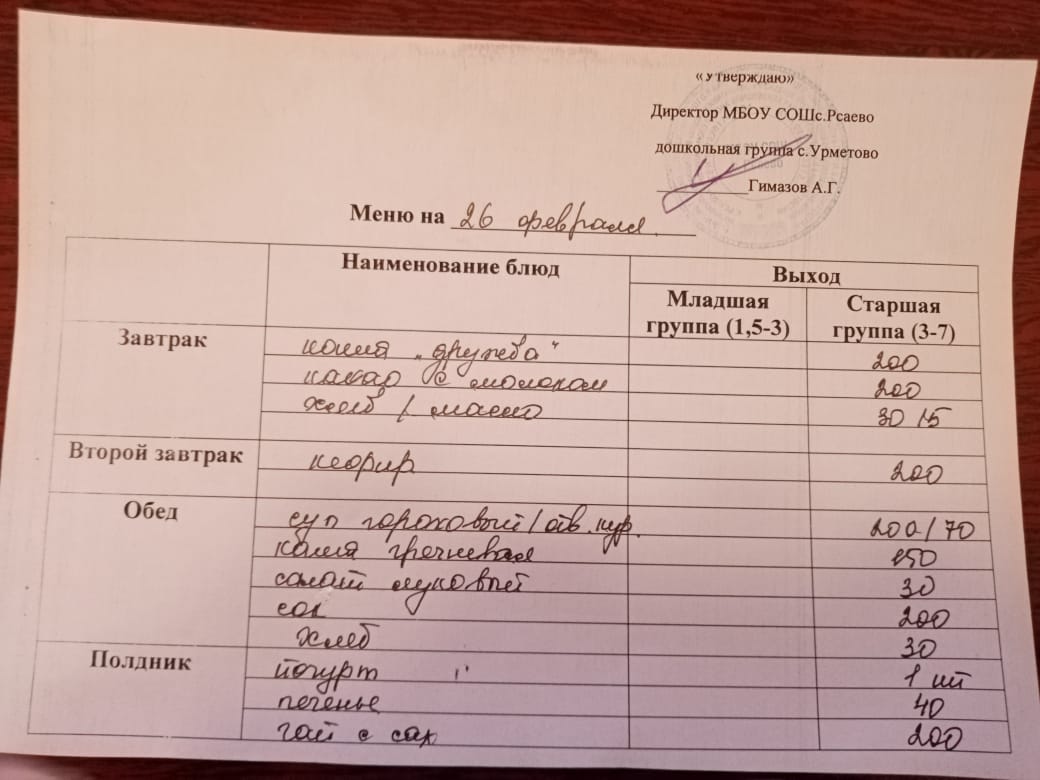 «Утверждаю»
Директор МБОУ СОШс.Рсаево
дошкольная группа с.Урметово
Гимазов А.Г.
Меню на 26 февраля
Наименование блюд Выход
Младшая группа (1,5-3) Старшая группа (3-7)
Завтрак каша „дружба" 200
какао с молоком 200
хлеб / масло 30 /5
Второй завтрак кефир 200
Обед суп гороховый / отв. кур. 200 / 70
каша гречневая 150
салат луковый 30
сок 200
хлеб 30
Полдник йогурт 1 шт
печенье 40
чай с сах 200